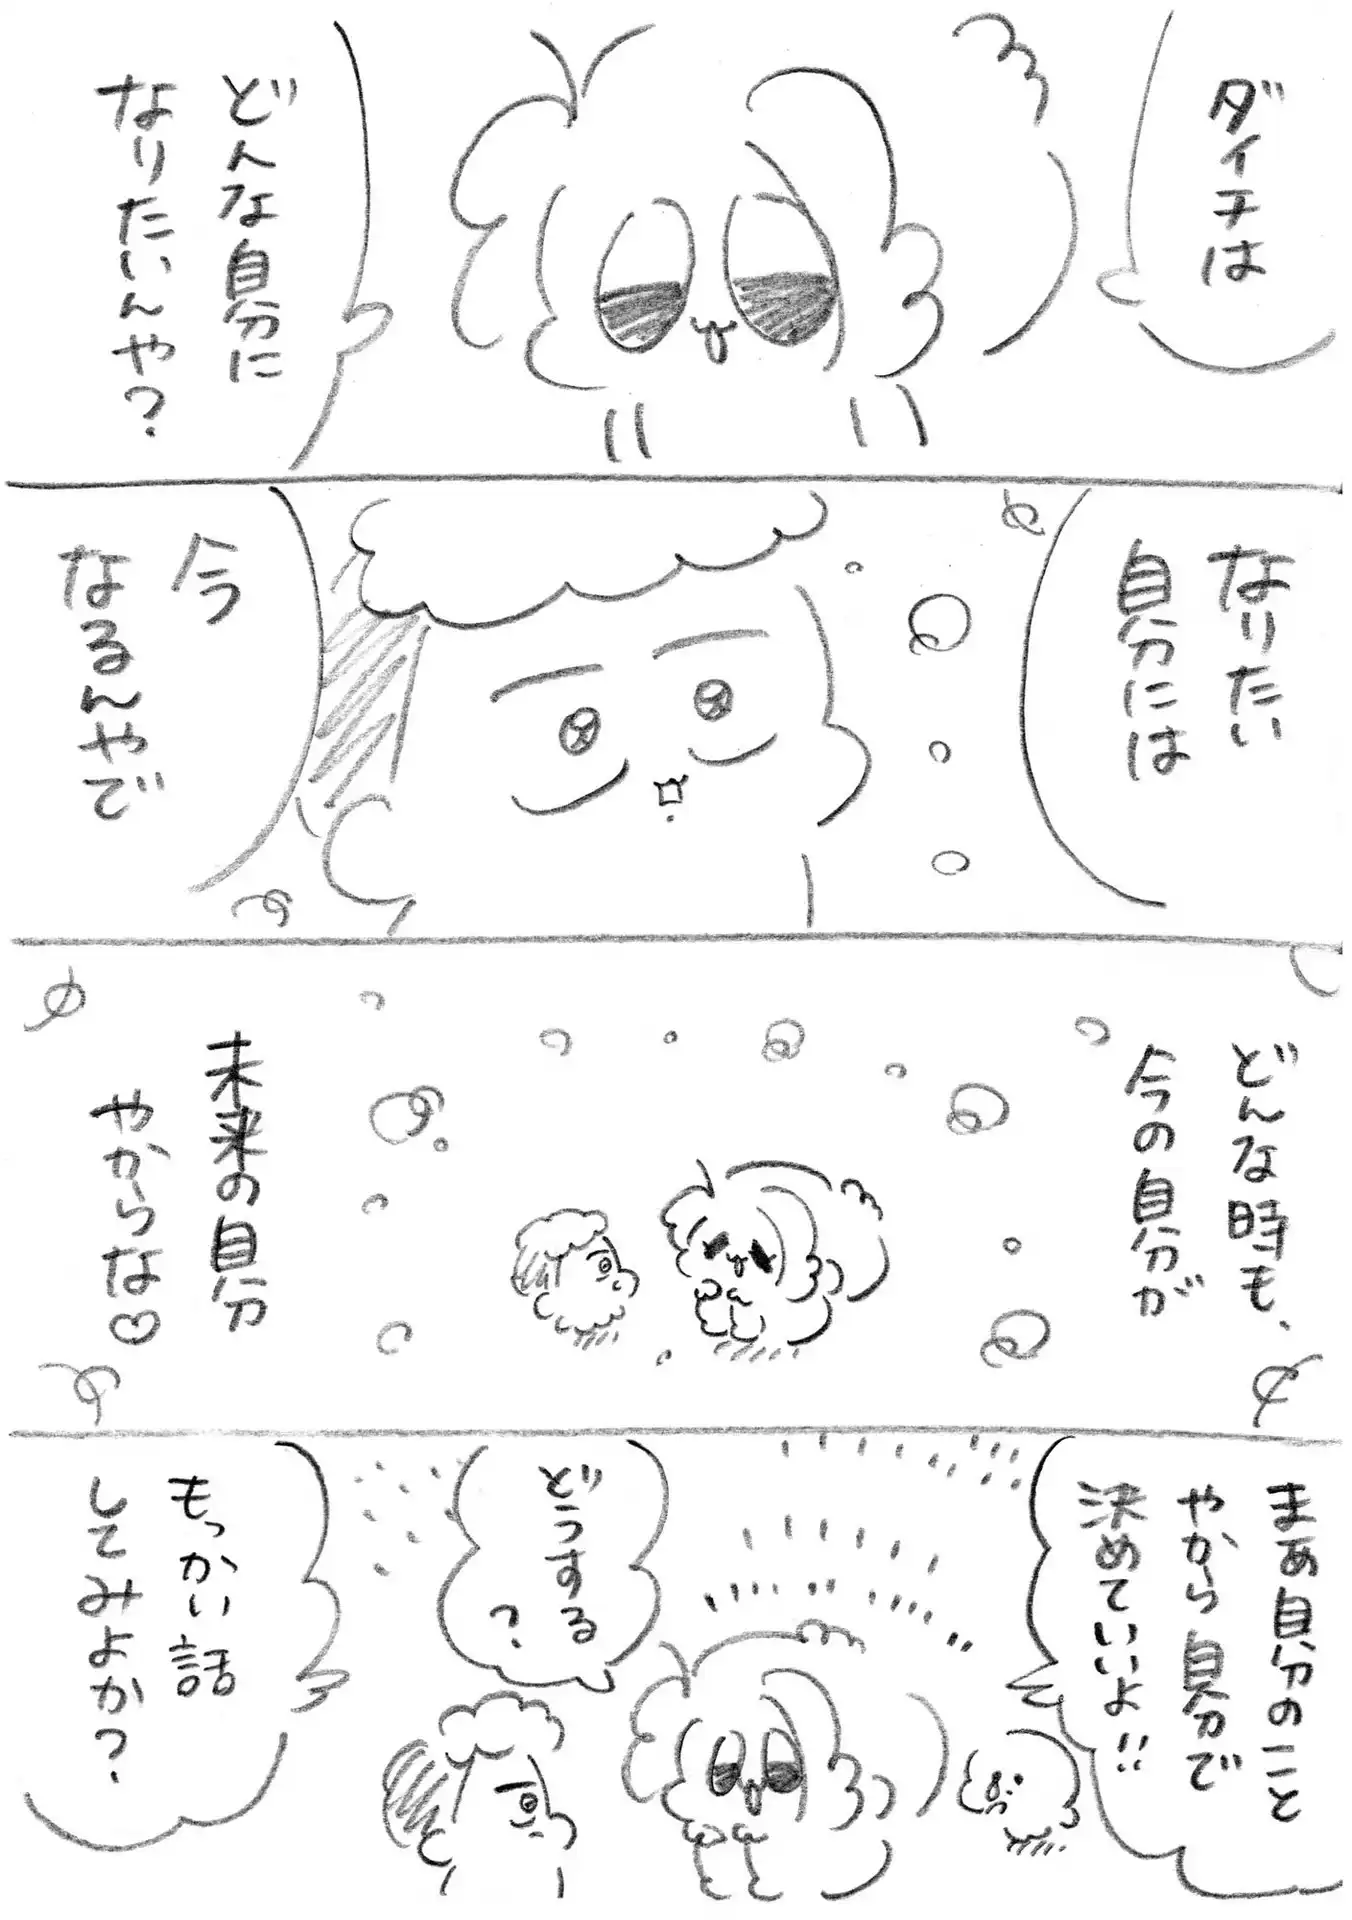 ダイチは
どんな自分に
なりたいんや?
なりたい
自分には
今
なるんやで
どんな時も、
今の自分が
未来の自分
やからな♡
まぁ自分のこと
やから自分で
決めていいよ!!
どうする
?
もっかい話
してみよか?